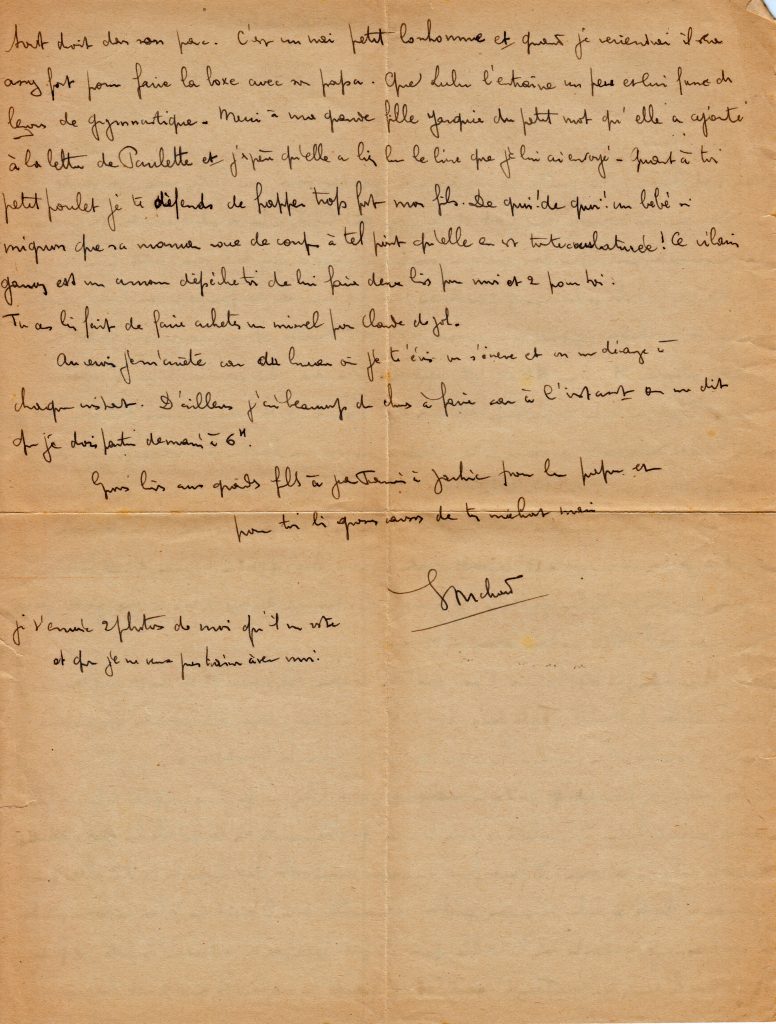 tout droit dans son parc. C'est un vrai petit bonhomme et quand je reviendrai il sera
assez fort pour faire la boxe avec son papa. Que Lulu l'entraîne un peu et lui fasse des
leçons de gymnastique. Merci à ma grande fille du petit mot qu'elle a ajouté
à la lettre de Paulette et j'espère qu'elle a bien lu le livre que je lui ai envoyé. Quant à toi
petit poulet je te défends de frapper trop fort mon fils. De quoi! de quoi! un bébé si
mignon que sa maman roue de coups à tel point qu'elle en est toute courbaturée! Ce vilain
est un amour dépêche toi de lui faire deux bis pour moi et 2 pour toi.
Tu as bien fait de faire acheter un missel par Claude
je m'arrête car du bureau où je t'écris on s'énerve et on me dérange à
chaque instant. D'ailleurs j'ai beaucoup de choses à faire car à l'instant on me dit
que je dois partir demain à 6H.
Gros bis aux grands fils à à Jackie pour le et
pour toi les grosses de ton méchant mari
je t'envoie 2 photos de moi qu'il me reste
et que je ne veux pas traîner avec moi.